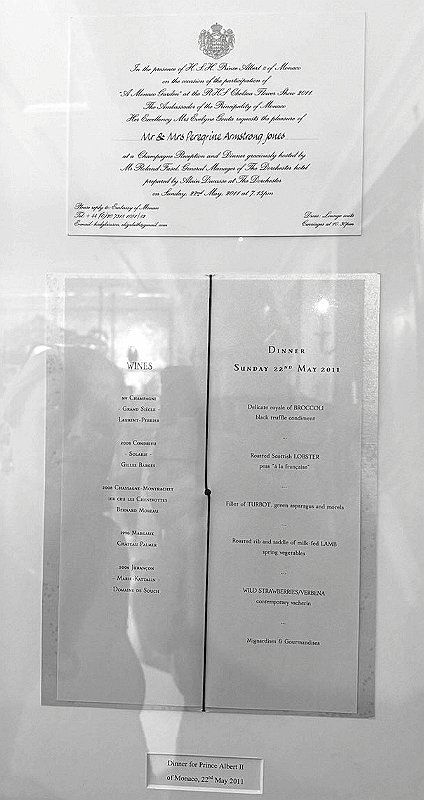 In the presence of H.S.H. Prince Albert 2 of Monaco
on the occasion of the participation of
"A Monaco Garden" at the R.H.S. Chelsea Flower Show 2011
The Ambassador of the Principality of Monaco
Her Excellency Mrs Evelyne Genta requests the pleasure of
Mr & Mrs Peregrine Armstrong Jones
at a Champagne Reception and Dinner graciously hosted by
Mr Roland Fasel, General Manager of The Dorchester hotel
prepared by Alain Ducasse at The Dorchester
on Sunday, 22nd May, 2011 at 7.15pm
Please reply to: Embassy of Monaco
Dress: Lounge suits
Carriages at 10.30pm
WINES
NV CHAMPAGNE
- GRAND SIÈCLE -
LAURENT-PERRIER
2008 CONDRIEU
- SOLARIS -
GILLES BARGES
2006 CHASSAGNE-MONTRACHET
1ER CRU LES CHENEVOTTES
BERNARD MOREAU
1996 MARGAUX
CHÂTEAU PALMER
2006 JURANÇON
- MARIE-KATTALIN -
DOMAINE DE SOUCH
DINNER
SUNDAY 22ND MAY 2011
Delicate royale of BROCCOLI
black truffle condiment
...
Roasted Scottish LOBSTER
peas "à la française"
...
Fillet of TURBOT, green asparagus and morels
...
Roasted rib and saddle of milk-fed LAMB
spring vegetables
...
WILD STRAWBERRIES/VERBENA
contemporary vacherin
...
Mignardises & Gourmandises
Dinner for Prince Albert II
of Monaco, 22nd May 2011